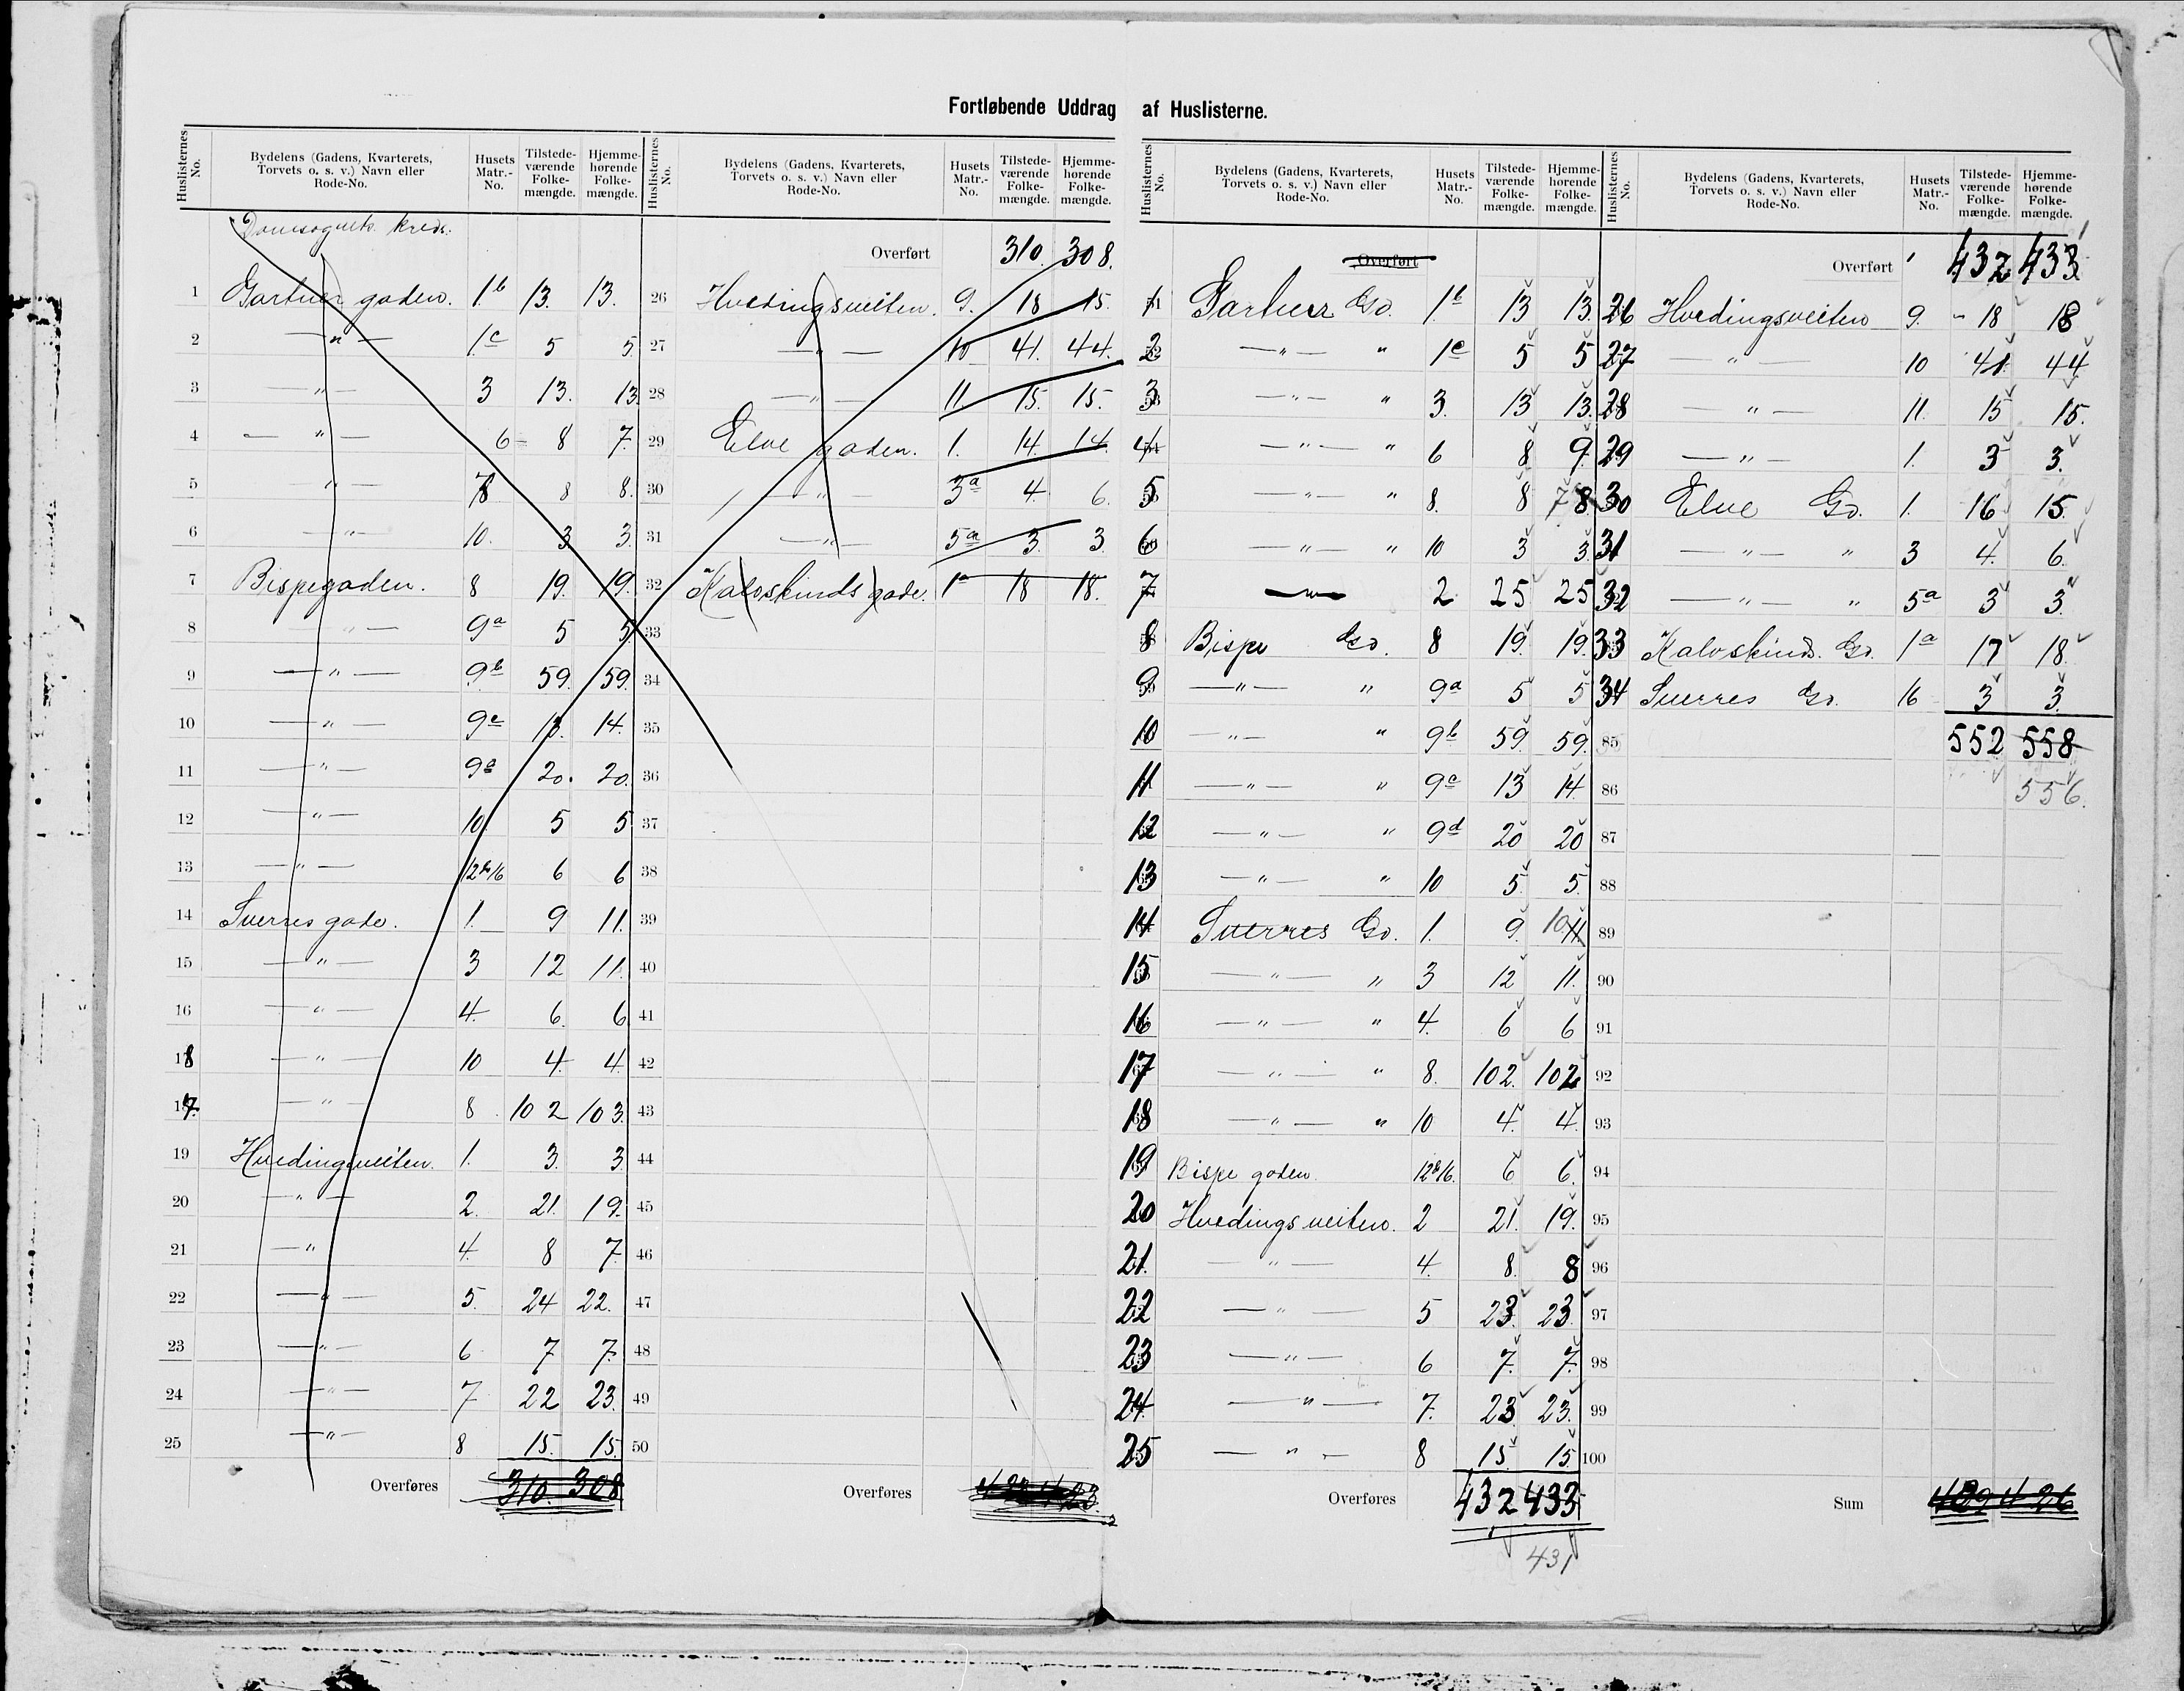 Fortløbende Uddrag af Huslisterne.
Huslisternes No. Bydelens (Gadens, Kvarterets, Torvets o. s. v.) Navn eller Rode-No. Husets Matr.-No. Tilstedeværende Folkemængde. Hjemmehørende Folkemængde.
Domsognets Kreds.
1 Gartner gaden. 1b 13. 13.
2 — " — 1c 5 5
3 — " — 3 13. 13
4 — " — 6 8 7
5 — " — 8 8 8.
6 — " — 10. 3 3
7 Bispegaden. 8 19. 19.
8 — " — 9a 5 5
9 — " — 9b 59. 59
10 — " — 9c 13. 14.
11 — " — 9d 20. 20.
12 — " — 10 5 5
13 — " — 12b/16 6 6
14 Sverres gade. 1. 9 11.
15 — " — 3 12 11.
16 — " — 4. 6. 6
18 — " — 10 4 4
17. — " — 8 102 103
19 Hvedingsveiten. 1. 3. 3
20 — " — 2. 21. 19.
21 — " 4. 8 7
22 — " — 5. 24 22.
23 — " — 6 7 7.
24 — " — 7 22 23.
25 — " — 8 15. 15.
Overføres 310. 308
Huslisternes No. Bydelens (Gadens, Kvarterets, Torvets o. s. v.) Navn eller Rode-No. Husets Matr.-No. Tilstedeværende Folkemængde. Hjemmehørende Folkemængde.
Overført 310. 308.
26 Hvedingsveiten. 9. 18 15.
27 — " — 10 41. 44.
28 — " — 11. 15. 15.
29 Elve gaden. 1. 14. 14.
30 — " — 3a 4. 6.
31 — " — 5a 3. 3
32 Kalvskinds gade. 1a 18 18.
33
34
35
36
37
38
39
40
41
42
43
44
45
46
47
48
49
50
Overføres
Huslisternes No. Bydelens (Gadens, Kvarterets, Torvets o. s. v.) Navn eller Rode-No. Husets Matr.-No. Tilstedeværende Folkemængde. Hjemmehørende Folkemængde.
Overført
1 Gartner Gd. 1b 13 13.
2 — " — " 1c 5 5
3 — " — " 3. 13 13.
4 — " — " 6 8 9.
5 — " — " 8. 8 7 8
6 — " — " 10 3 3.
7 — " — 2 25 25
8 Bispe Gd. 8 19. 19.
9 — " — " 9a 5 5
10 — " — " 9b 59. 59.
11 — " — " 9c 13 14.
12 — " — " 9d 20 20
13 — " — " 10 5. 5.
14 Sverres Gd. 1. 9. 10 11.
15 — " — " 3 12 11.
16 — " — " 4. 6 6
17 — " — " 8. 102. 102
18 — " — " 10 4. 4.
19 Bispe gaden. 12b/16. 6 6.
20 Hvedingsveiten. 2 21. 19.
21. — " — 4. 8. 8
22 — " — 5 23. 23.
23 — " — 6 7. 7.
24. — " — 7. 23 23.
25 — " — 8 15. 15.
Overføres 432 433
431
Huslisternes No. Bydelens (Gadens, Kvarterets, Torvets o. s. v.) Navn eller Rode-No. Husets Matr.-No. Tilstedeværende Folkemængde. Hjemmehørende Folkemængde.
Overført 432 433
26 Hvedingsveiten 9. 18 18
27 — " — 10 41. 44.
28 — " — 11. 15 15.
29 — " — 1. 3 3.
30 Elve Gd. 1. 16 15.
31 — " — " 3 4. 6.
32 — " — " 5a 3 3.
33 Kalvskinds. Gd. 1a 17 18.
34 Sverres Gd. 16 3 3.
85 552 558
556.
86
87
88
89
90
91
92
93
94
95
96
97
98
99
100
Sum